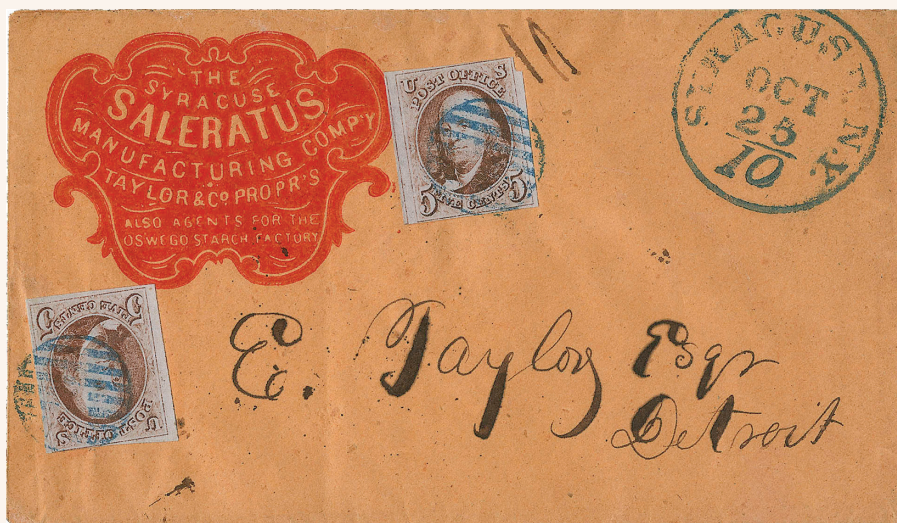 THE
SYRACUSE
SALERATUS
MANUFACTURING COMP'Y
TAYLOR & Co PROPR'S
ALSO AGENTS FOR THE
OSWEGO STARCH FACTORY
U S
POST OFFICE
5 FIVE CENTS 5
SYRACUSE N.Y.
OCT
25
10
10
U S
POST OFFICE
5 FIVE CENTS 5
E. Taylor Esqr
Detroit